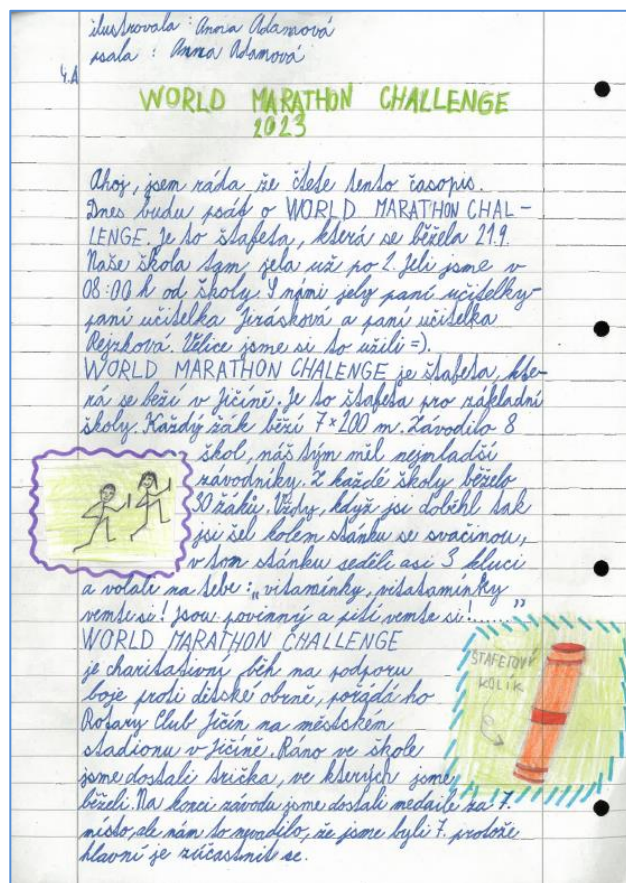 ilustrovala : Anna Adamová
psala : Anna Adamová
4.A
WORLD MARATHON CHALLENGE
2023
Ahoj, jsem ráda že čtete tento časopis.
Dnes budu psát o WORLD MARATHON CHAL-
LENGE. Je to štafeta, která se běžela 21.9.
Naše škola tam jela už po 2. Jeli jsme v
08:00 h od školy. S námi jely paní učitelky-
paní učitelka Jirásková a paní učitelka
Rejzková. Velice jsme si to užili =).
WORLD MARATHON CHALENGE je štafeta, kte-
rá se beží v Jičíně. Je to štafeta pro základní
školy. Každý žák běží 7×200 m. Závodilo 8
škol, náš tým měl nejmladší
závodníky. Z každé školy běželo
30 žáků. Vždy, když jsi doběhl tak
jsi šel kolem stánku se svačinou,
v tom stánku seděli asi 3 kluci
a volali na tebe: „vitamínky, vitatamínky
vemte si! Jsou povinný a pití vemte si!......"
WORLD MARATHON CHALLENGE
je charitativní běh na podporu
boje proti dětské obrně, pořádá ho
Rotary Club Jičín na městském
stadionu v Jičíně. Ráno ve škole
jsme dostali trička, ve kterých jsme
běželi. Na konci závodu jsme dostali medaile za 7.
místo, ale nám to nevadilo, že jsme byli 7. protože
hlavní je zúčastnit se.
ŠTAFETOVÝ
KOLÍK